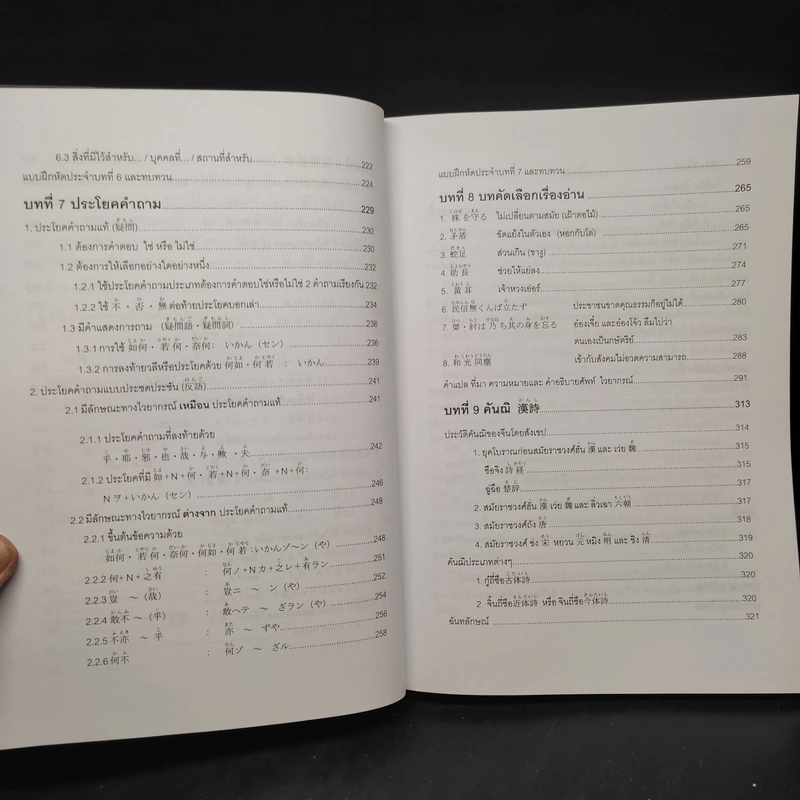 6.3 สิ่งที่มีไว้สำหรับ... / บุคคลที่... / สถานที่สำหรับ.....222
แบบฝึกหัดประจำบทที่ 6 และทบทวน.....224
บทที่ 7 ประโยคคำถาม.....229
1. ประโยคคำถามแท้ (疑問).....230
1.1 ต้องการคำตอบ ใช่ หรือ ไม่ใช่.....230
1.2 ต้องการให้เลือกอย่างใดอย่างหนึ่ง.....232
1.2.1 ใช้ประโยคคำถามประเภทต้องการคำตอบใช่หรือไม่ใช่ 2 คำถามเรียงกัน 232
1.2.2 ใช้ 不・否・無 ต่อท้ายประโยคบอกเล่า.....234
1.3 มีคำแสดงการถาม (疑問語・疑問詞).....236
1.3.1 การใช้ 如何・若何・奈何: いかん (セン).....236
1.3.2 การลงท้ายวลีหรือประโยคด้วย 何如・何若 : いかん.....239
2. ประโยคคำถามแบบประชดประชัน (反語).....241
2.1 มีลักษณะทางไวยากรณ์ เหมือน ประโยคคำถามแท้.....241
2.1.1 ประโยคคำถามที่ลงท้ายด้วย
乎・耶・邪・也・哉・与・歟・夫.....242
2.1.2 ประโยคที่มี 如+N+何・若+N+何・奈+N+何:
Nヲ+いかん (セン).....248
2.2 มีลักษณะทางไวยากรณ์ ต่างจาก ประโยคคำถามแท้.....248
2.2.1 ขึ้นต้นข้อความด้วย
如何・若何・奈何・何如・何若:いかんゾ～ン (や).....248
2.2.2 何+N+之有 : 何ノ+Nカ+之レ+有ラン.....251
2.2.3 豈 ～ (哉) : 豈ニ ～ ン (や).....252
2.2.4 敢不～ (乎) : 敢ヘテ ～ ざラン (や).....254
2.2.5 不亦～乎 : 亦 ～ ずや.....256
2.2.6 何不 : 何ゾ ～ ざル.....258
แบบฝึกหัดประจำบทที่ 7 และทบทวน.....259
บทที่ 8 บทคัดเลือกเรื่องอ่าน.....265
1. 株を守る ไม่เปลี่ยนตามสมัย (เฝ้าตอไม้).....265
2. 矛盾 ขัดแย้งในตัวเอง (หอกกับโล่).....268
3. 蛇足 ส่วนเกิน (ขางู).....271
4. 助長 ช่วยให้แย่ลง.....274
5. 黄耳 เจ้าหวงเอ่อร์.....277
6. 民信無くんば立たず ประชาชนขาดคุณธรรมก็อยู่ไม่ได้.....280
7. 桀・紂は乃ち其の身を忘る อ๋องเจี๋ย และอ๋องโจ้ว ลืมไปว่า
ตนเองเป็นกษัตริย์.....283
8. 和光同塵 เข้ากับสังคมไม่อวดความสามารถ.....288
คำแปล ที่มา ความหมายและ คำอธิบายศัพท์ ไวยากรณ์.....291
บทที่ 9 คันฌิ 漢詩.....313
ประวัติคันฌิของจีนโดยสังเขป.....314
1. ยุคโบราณก่อนสมัยราชวงศ์ฮั่น 漢 และ เว่ย 魏.....315
ซือจิง 詩経.....315
ฉู่ฉือ 楚辞.....317
2. สมัยราชวงศ์ฮั่น 漢 เว่ย 魏 และ ลิ่วเฉา 六朝.....317
3. สมัยราชวงศ์ถัง 唐.....318
4. สมัยราชวงศ์ ซ่ง 宋 หยวน 元 หมิง 明 และ ชิง 清.....319
คันฌิประเภทต่างๆ.....320
1. กู่ถี่ซือ 古体詩.....320
2. จิ้นถี่ซือ 近体詩 หรือ จินถี่ซือ 今体詩.....320
ฉันทลักษณ์.....321